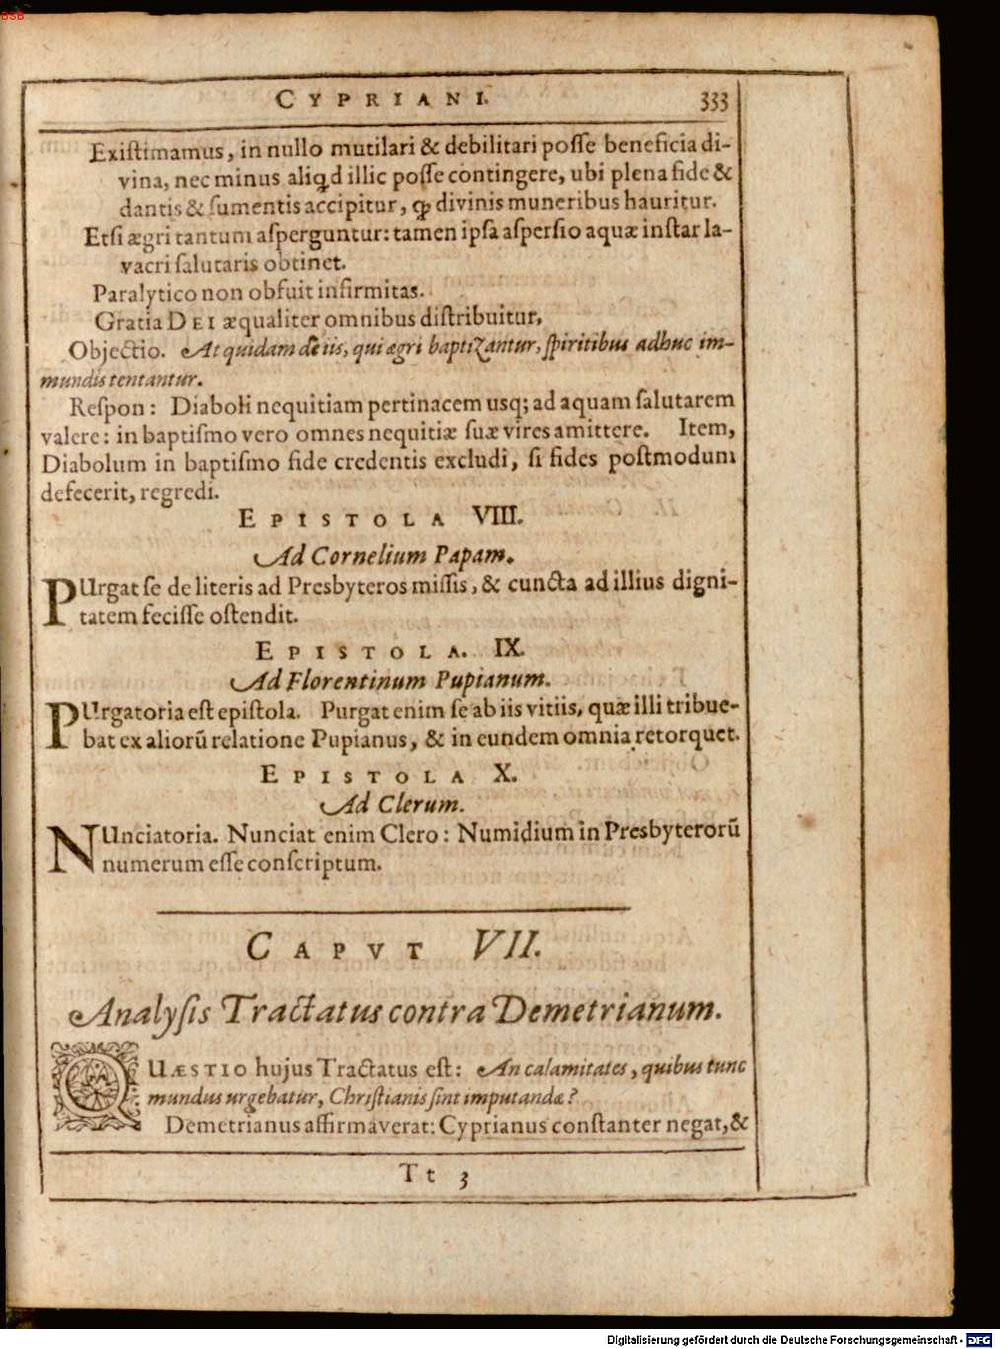 BSB
CYPRIANI. 333
Existimamus, in nullo mutilari & debilitari posse beneficia di-
vina, nec minus aliq̃d illic posse contingere, ubi plena fide &
dantis & sumentis accipitur, ꝙ divinis muneribus hauritur.
Etsi ægri tantum asperguntur: tamen ipsa aspersio aquæ instar la-
vacri salutaris obtinet.
Paralytico non obfuit infirmitas.
Gratia DEI æqualiter omnibus distribuitur,
Objectio. At quidam de iis, qui ægri baptizantur, spiritibus adhuc im-
mundis tentantur.
Respon: Diaboli nequitiam pertinacem usq; ad aquam salutarem
valere: in baptismo vero omnes nequitiæ suæ vires amittere. Item,
Diabolum in baptismo fide credentis excludi, si fides postmodum
defecerit, regredi.
EPISTOLA VIII.
Ad Cornelium Papam.
PUrgat se de literis ad Presbyteros missis, & cuncta ad illius digni-
tatem fecisse ostendit.
EPISTOLA. IX.
Ad Florentinum Pupianum.
PUrgatoria est epistola. Purgat enim se ab iis vitiis, quæ illi tribue-
bat ex aliorũ relatione Pupianus, & in eundem omnia retorquet.
EPISTOLA X.
Ad Clerum.
NUnciatoria. Nunciat enim Clero: Numidium in Presbyterorũ
numerum esse conscriptum.
CAPVT VII.
Analysis Tractatus contra Demetrianum.
QUÆSTIO hujus Tractatus est: An calamitates, quibus tunc
mundus urgebatur, Christianis sint imputandæ?
Demetrianus affirmaverat: Cyprianus constanter negat, &
Tt 3
Digitalisierung gefördert durch die Deutsche Forschungsgemeinschaft - DFG